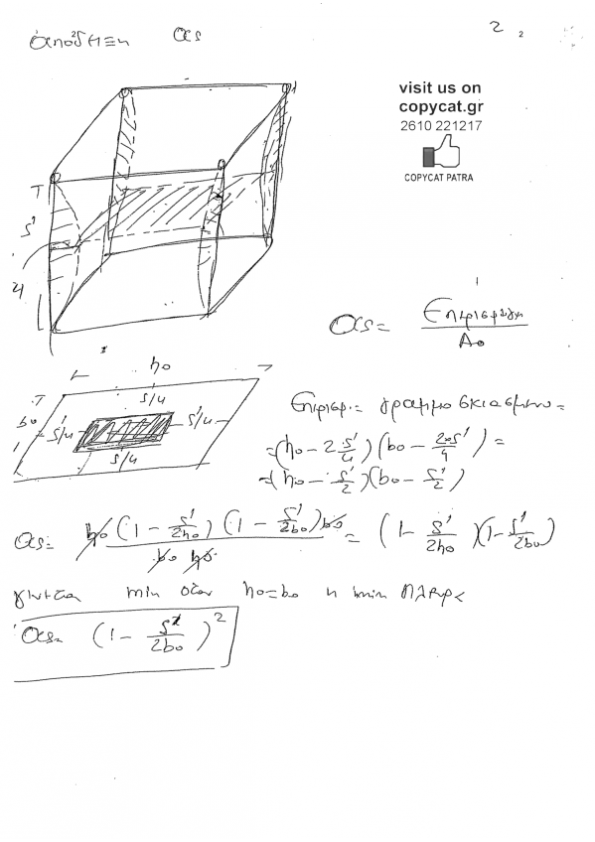 απόδειξη αs 2
visit us on
copycat.gr
2610 221217
COPYCAT PATRA
s'
4
αs = Επερισφυγμ / Ao
ho
bo
s/4
s'/4 s'/4
s/4
Επερισφ. = γραμμοσκιασμενο =
= (ho - 2 s'/4) (bo - 2xs'/4) =
= (ho - s'/2) (bo - s'/2)
αs = ho (1 - s'/2ho) (1 - s'/2bo) bo / bo ho = (1 - s'/2ho) (1 - s'/2bo)
γινεται min οταν ho = bo η min πλευρα
αs = (1 - s'/2bo)²